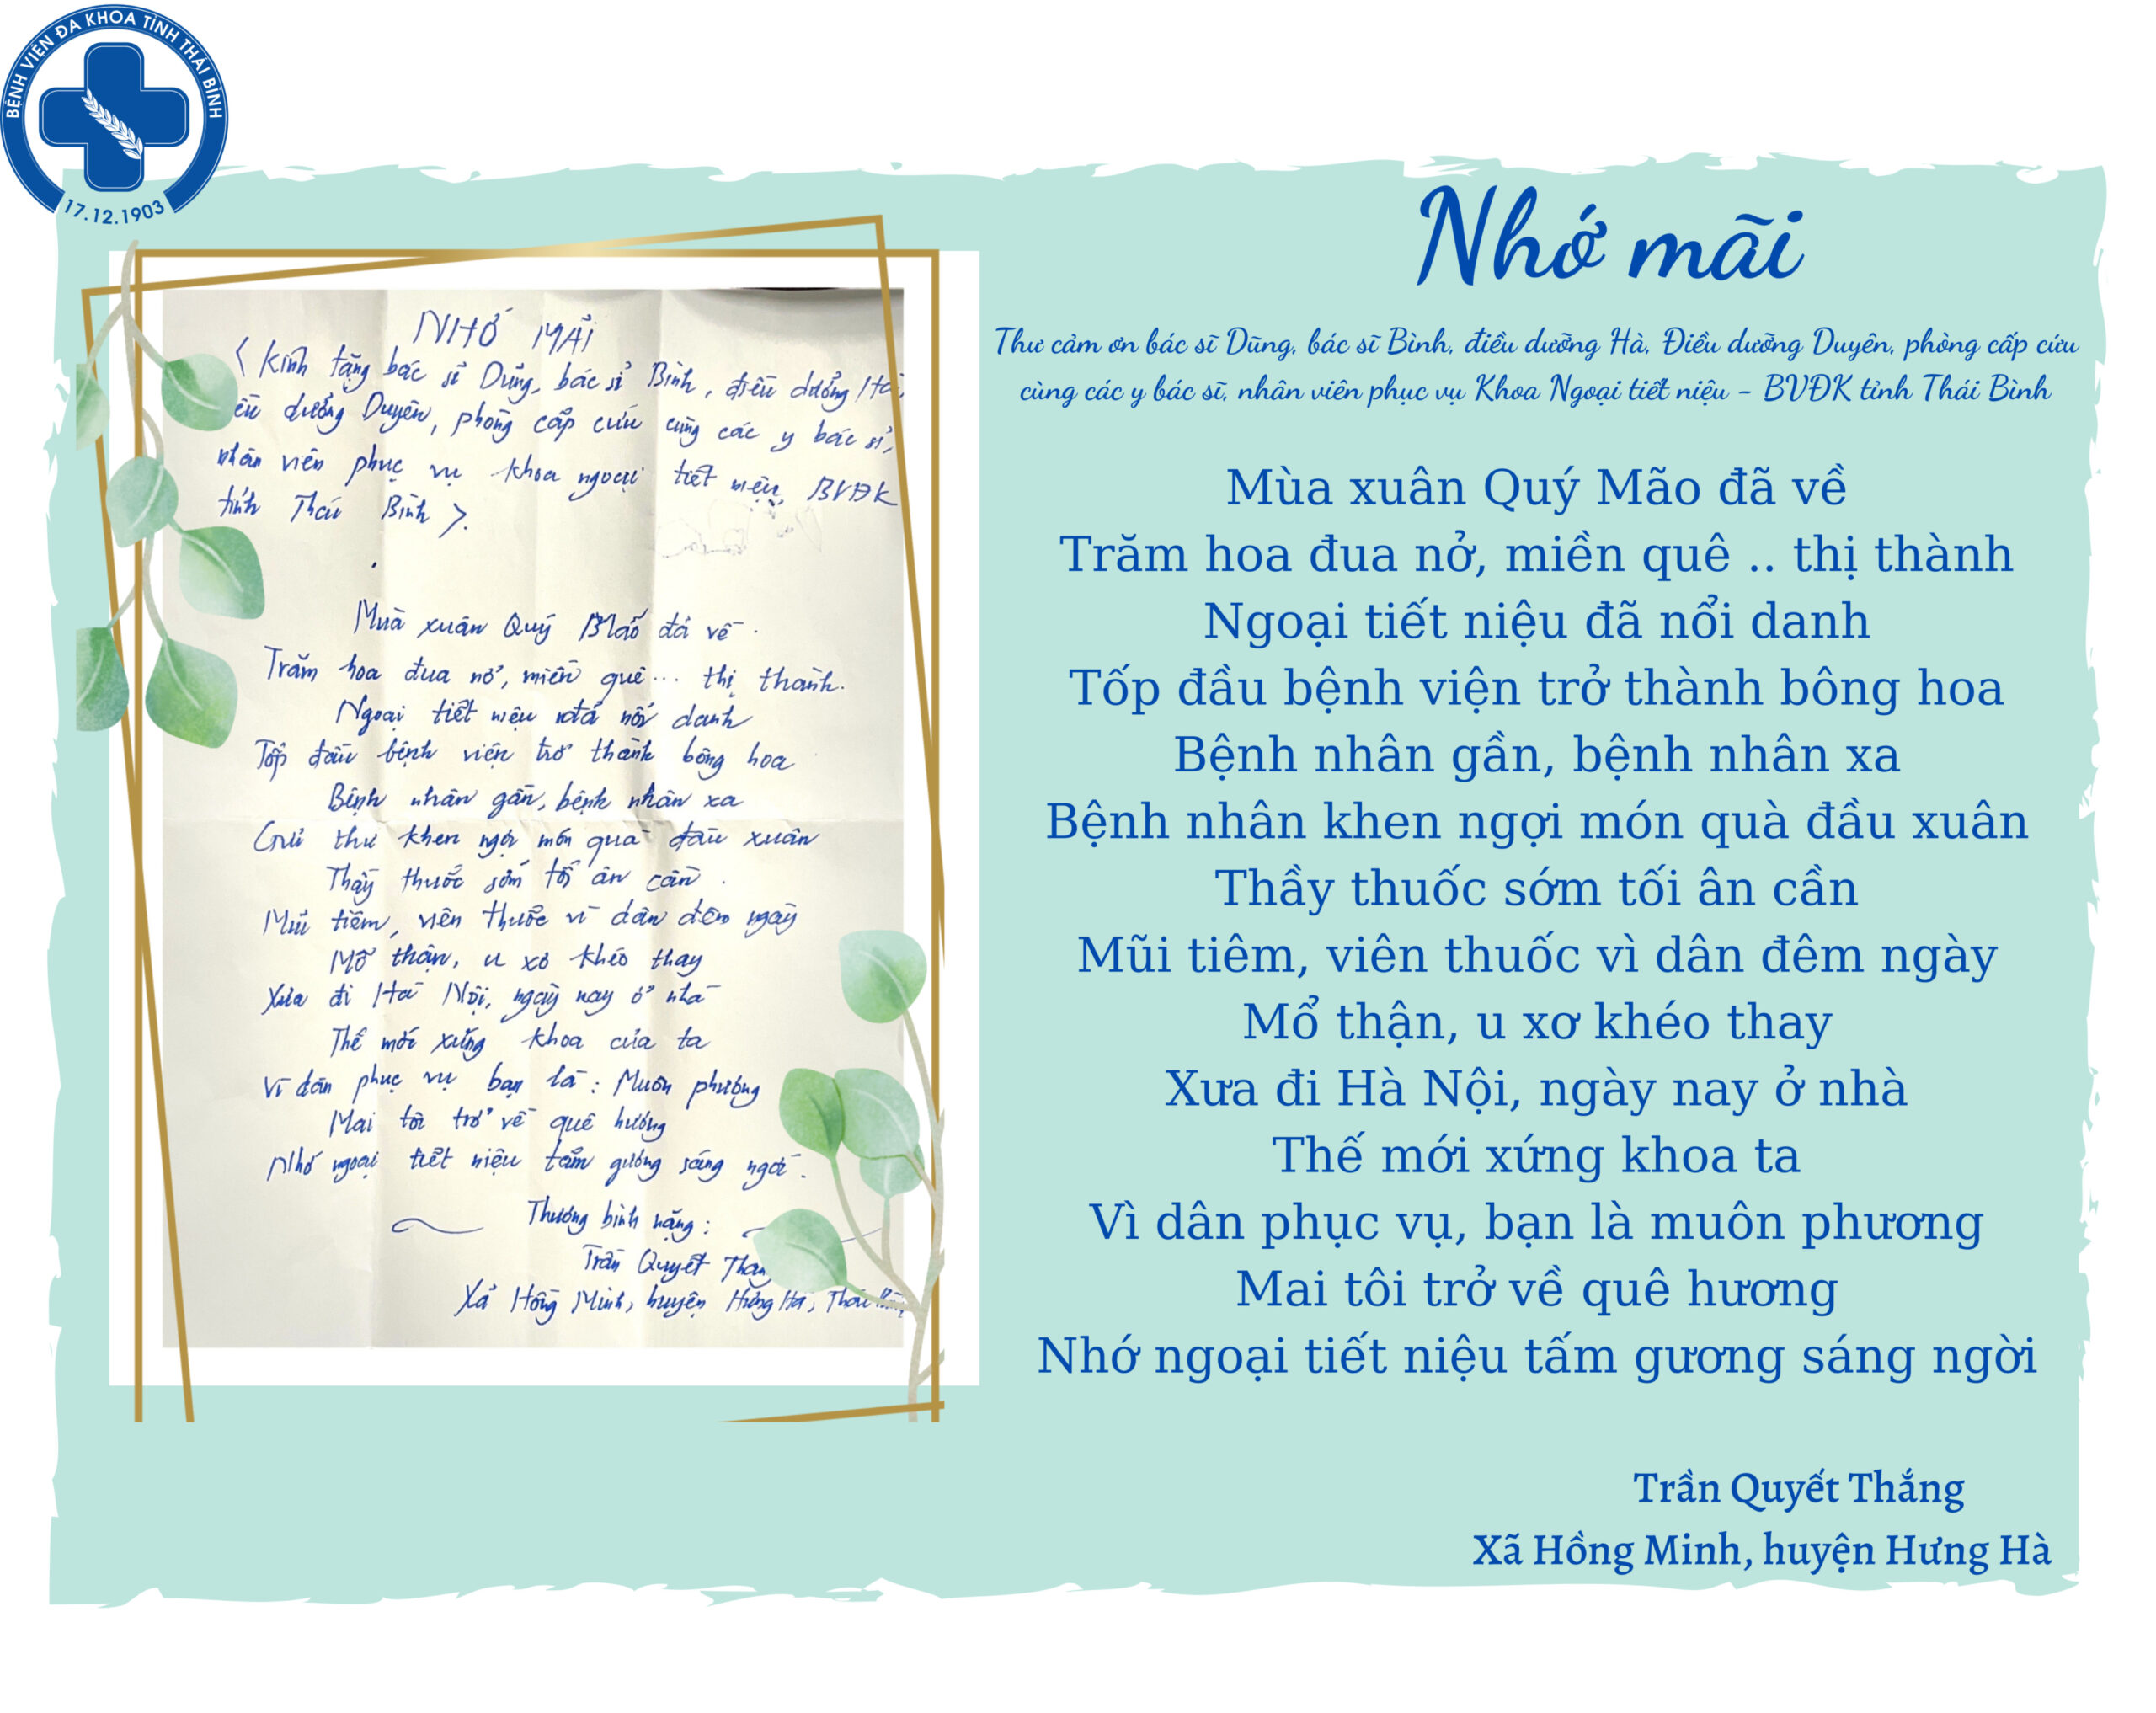 BỆNH VIỆN ĐA KHOA TỈNH THÁI BÌNH
17.12.1903
NHỚ MÃI
< Kính tặng bác sĩ Dũng, bác sĩ Bình, điều dưỡng Hà,
dưỡng Duyên, phòng cấp cứu cùng các y bác sĩ,
nhân viên phục vụ khoa ngoại tiết niệu, BVĐK
tỉnh Thái Bình >.
Mùa xuân Quý Mão đã về.
Trăm hoa đua nở, miền quê... thị thành.
Ngoại tiết niệu đã nổi danh
Tốp đầu bệnh viện trở thành bông hoa
Bệnh nhân gần, bệnh nhân xa
Gửi thư khen ngợi món quà đầu xuân
Thầy thuốc sớm tối ân cần.
Mũi tiêm, viên thuốc vì dân đêm ngày
Mổ thận, u xơ khéo thay
Xưa đi Hà Nội, ngày nay ở nhà
Thế mới xứng khoa của ta
Vì dân phục vụ bạn là: Muôn phương
Mai tôi trở về quê hương
Nhớ ngoại tiết niệu tấm gương sáng ngời.
Thương binh nặng:
Trần Quyết
Xã Hồng Minh, huyện Hưng Hà, Thái
Nhớ mãi
Thư cảm ơn bác sĩ Dũng, bác sĩ Bình, điều dưỡng Hà, Điều dưỡng Duyên, phòng cấp cứu
cùng các y bác sĩ, nhân viên phục vụ Khoa Ngoại tiết niệu - BVĐK tỉnh Thái Bình
Mùa xuân Quý Mão đã về
Trăm hoa đua nở, miền quê .. thị thành
Ngoại tiết niệu đã nổi danh
Tốp đầu bệnh viện trở thành bông hoa
Bệnh nhân gần, bệnh nhân xa
Bệnh nhân khen ngợi món quà đầu xuân
Thầy thuốc sớm tối ân cần
Mũi tiêm, viên thuốc vì dân đêm ngày
Mổ thận, u xơ khéo thay
Xưa đi Hà Nội, ngày nay ở nhà
Thế mới xứng khoa ta
Vì dân phục vụ, bạn là muôn phương
Mai tôi trở về quê hương
Nhớ ngoại tiết niệu tấm gương sáng ngời
Trần Quyết Thắng
Xã Hồng Minh, huyện Hưng Hà